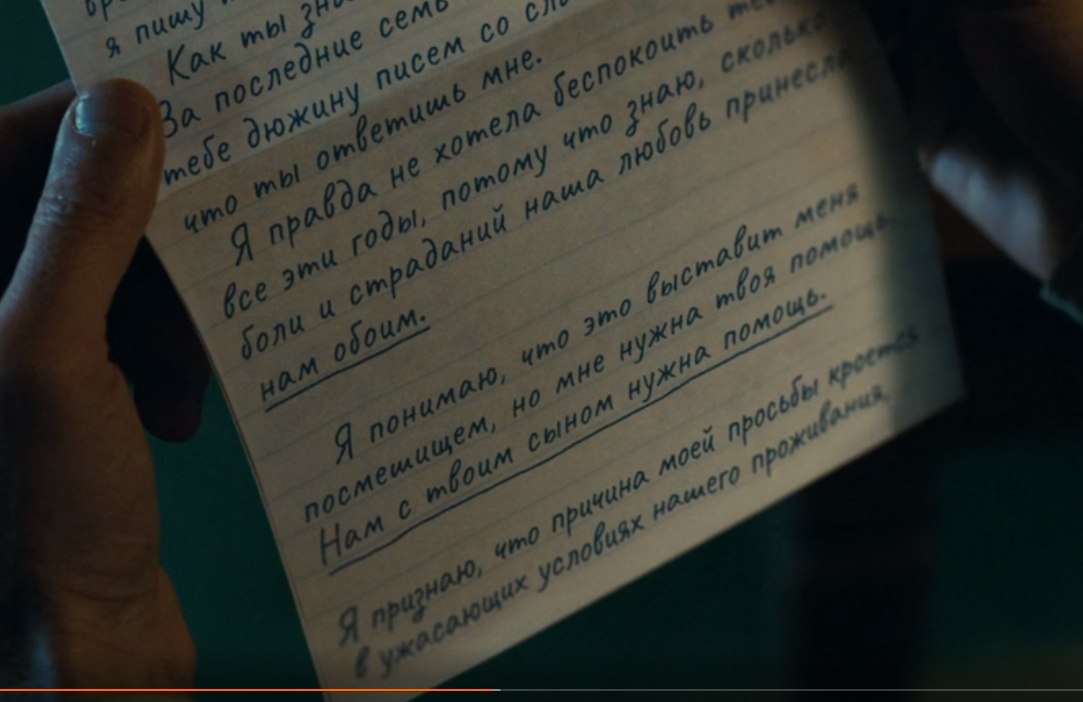 я пишу
Как ты
За последние семь
тебе дюжину писем со
что ты ответишь мне.
Я правда не хотела беспокоить
все эти годы, потому что знаю, сколько
боли и страданий наша любовь принесла
нам обоим.
Я понимаю, что это выставит меня
посмешищем, но мне нужна твоя помощь.
Нам с твоим сыном нужна помощь.
Я признаю, что причина моей просьбы кроется
в ужасающих условиях нашего проживания,